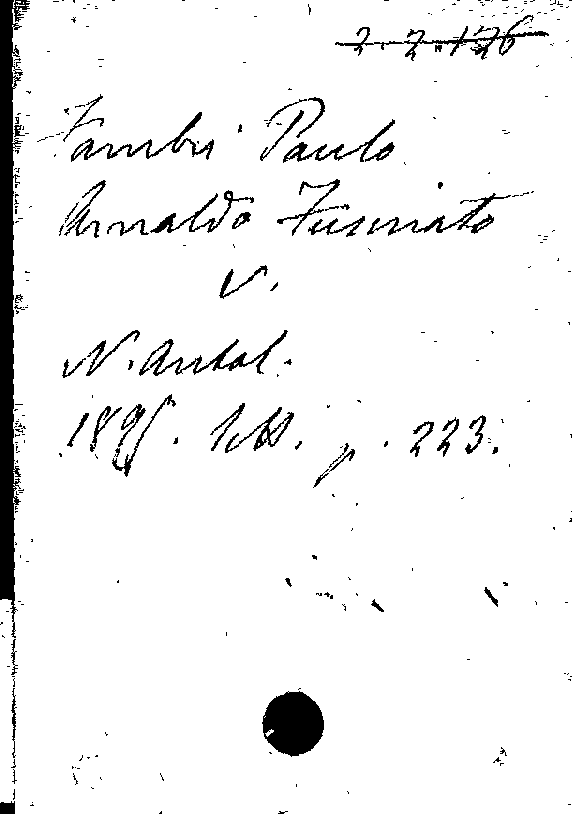 2. 2. 126
Fambri Paulo
Arnaldo Fusinato
v.
N. Antol.
1895. Sett. p. 223.